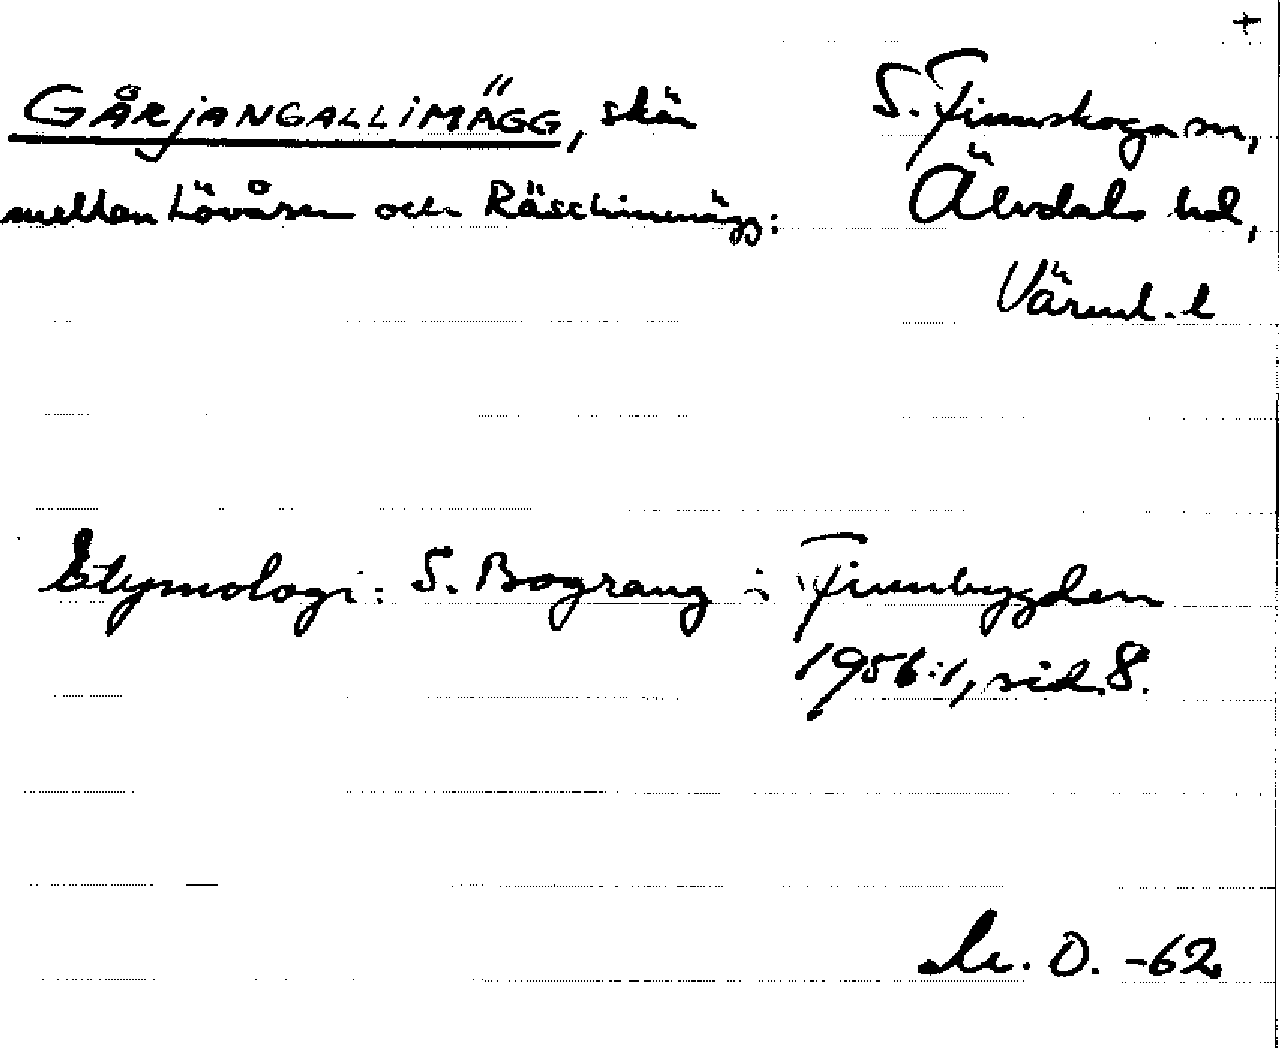 +
GÅRjANGALLiMÄGG, skär S. Finnskoga sn,
mellan Lövåsen och Räschimmägg: Älvdals hd,
Värml. l
Etymologi: S. Bograng i Finnbygden
1956:1, sid. 8.
O. -62